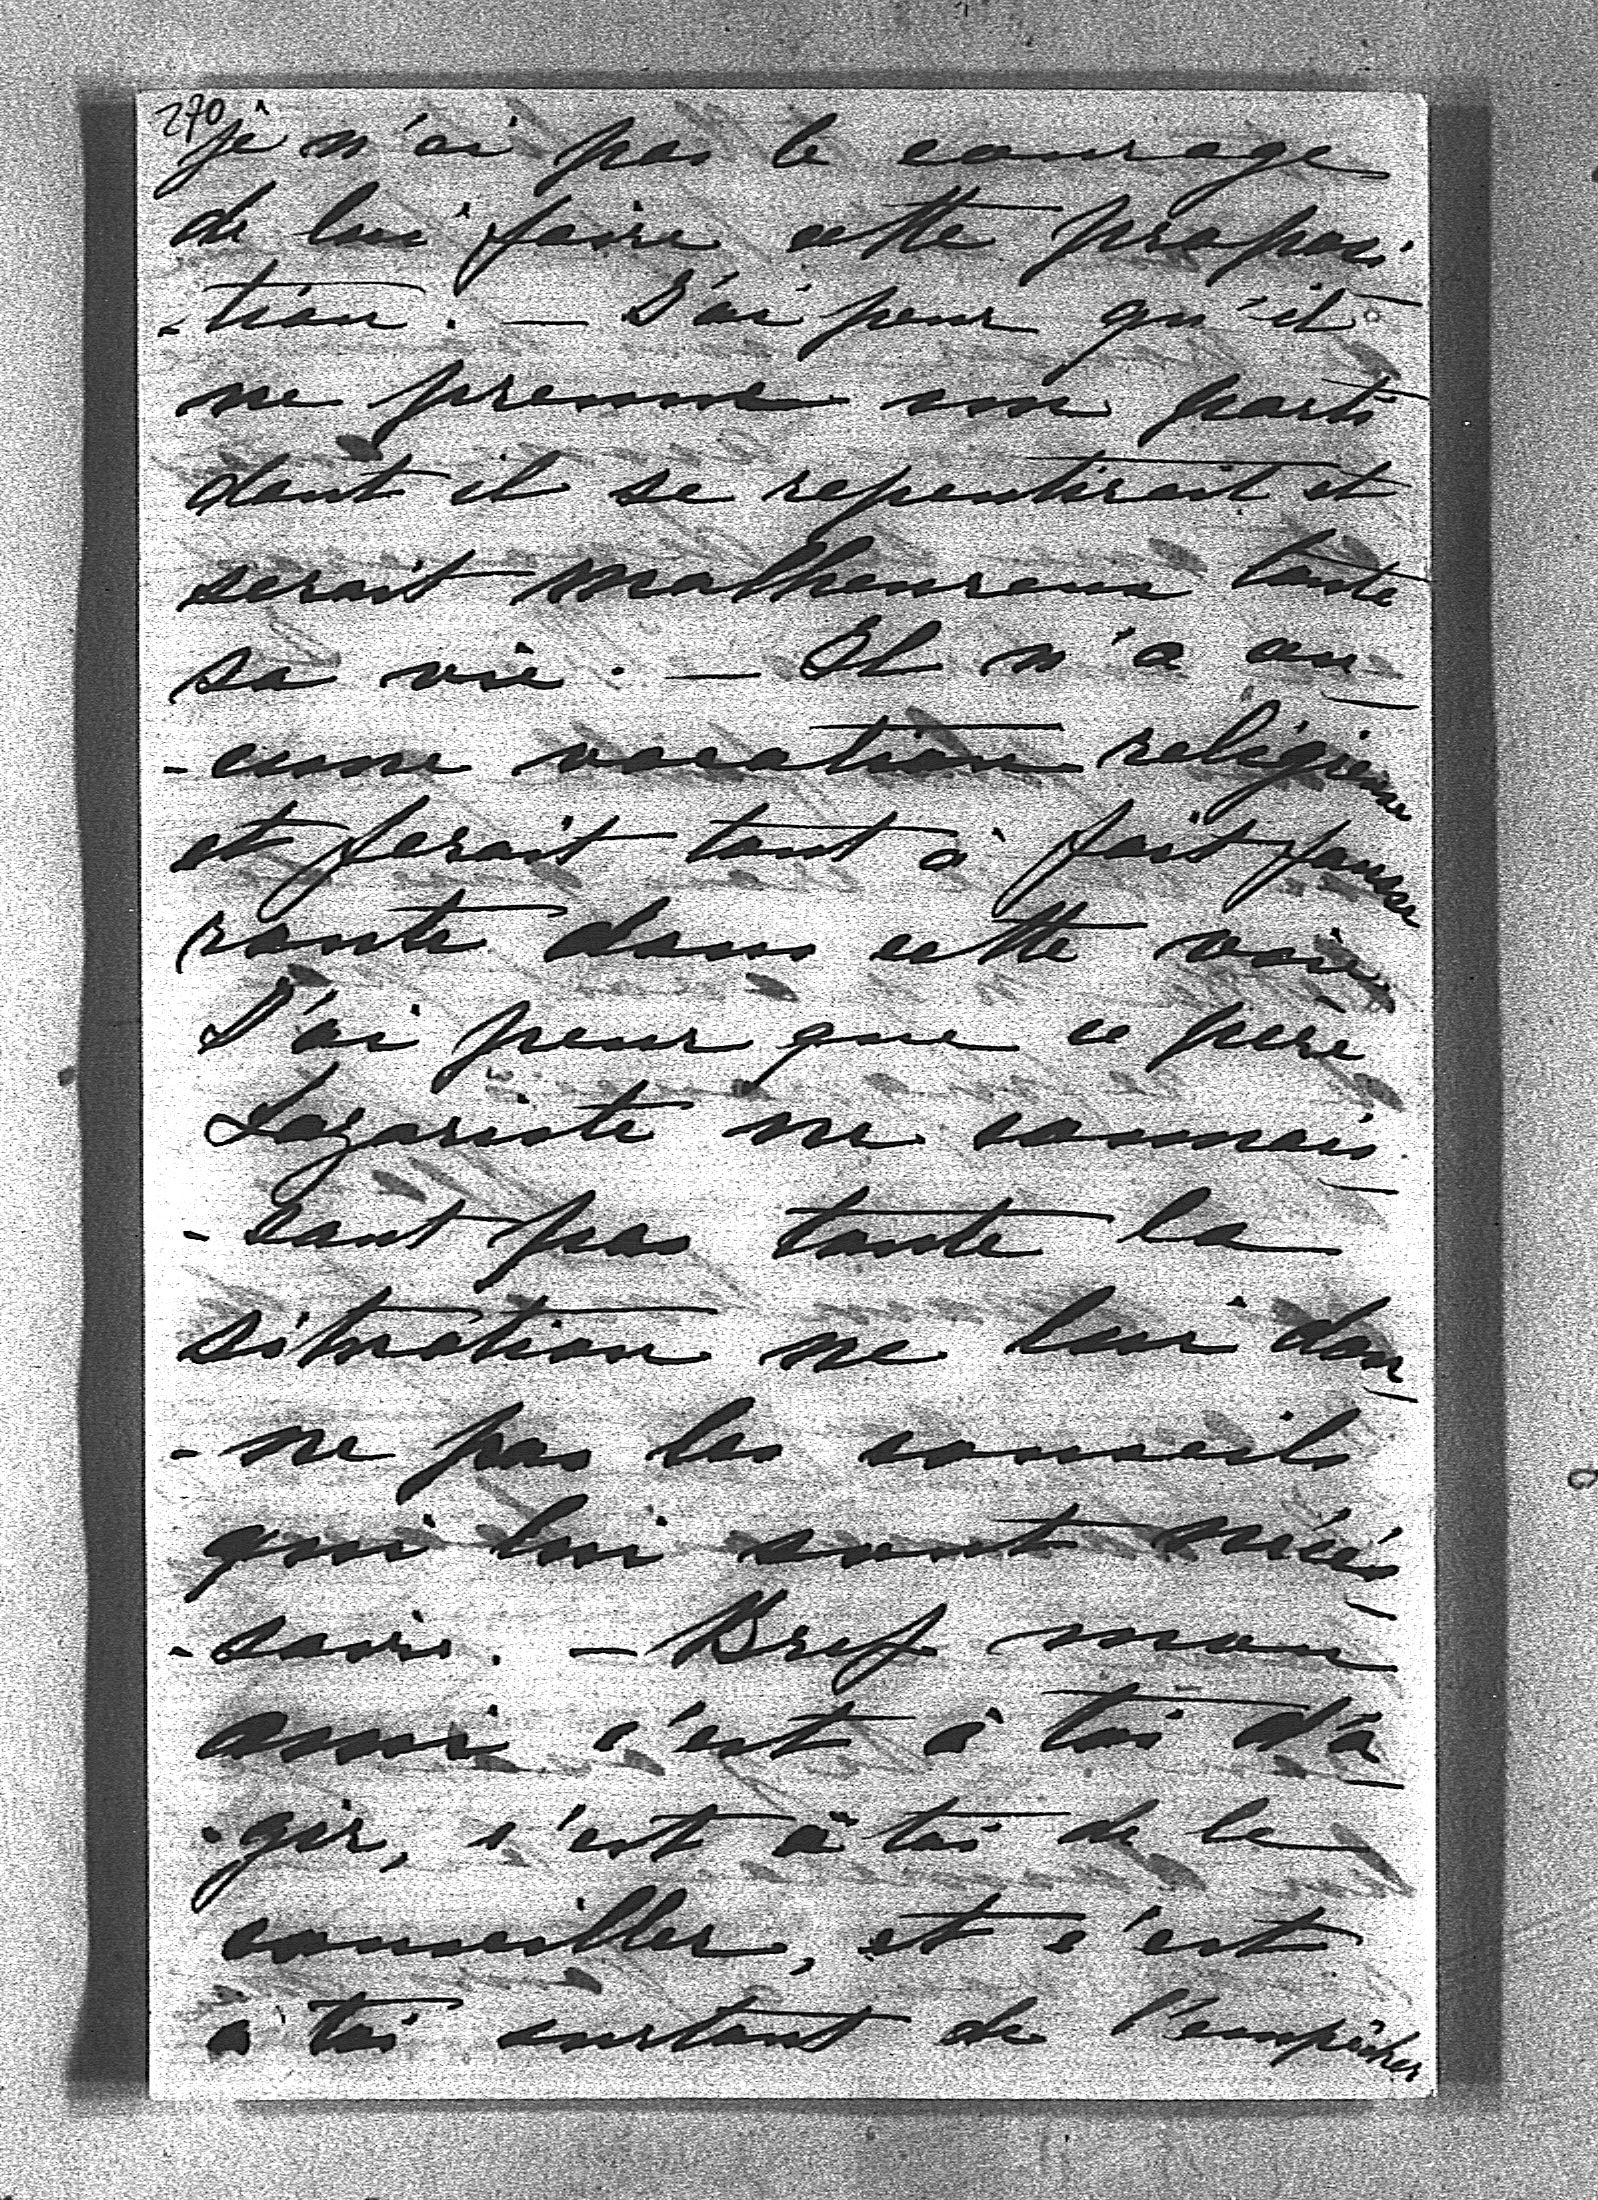 270
je n'ai pas le courage
de lui faire cette proposi-
-tion. — J'ai peur qu'il
ne prenne un parti
dont il se repentirait et
serait malheureux toute
sa vie. — Il n'a au-
-cune vocation religieuse
et ferait tout à fait fausse
route dans cette voie
J'ai peur que ce père
Lazariste ne connais-
-sant pas toute la
situation ne lui don-
-ne pas les conseils
qui lui sont néces-
-saire. — Bref mon
ami c'est à toi d'a-
-gir, c'est à toi de le
conseiller, et c'est
à toi surtout de l'empêcher